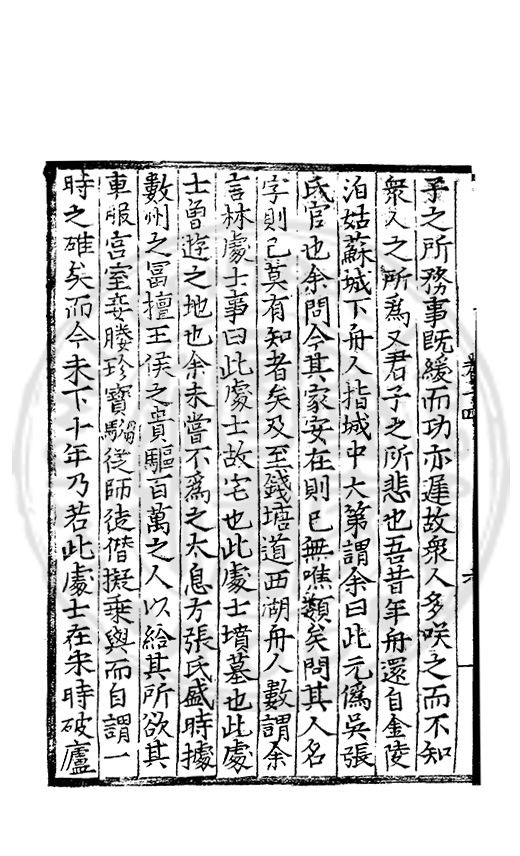 予之所務事旣緩而功亦遲故衆人多咲之而不知
衆人之所爲又君子之所悲也吾昔年舟還自金陵
泊姑蘇城下舟人指城中大第謂余曰此元僞吳張
氏官也余問今其家安在則已無噍類矣問其人名
字則已莫有知者矣及至錢塘道西湖舟人數謂余
言林處士事曰此處士故宅也此處士墳墓也此處
士曾遊之地也余未嘗不爲之太息方張氏盛時據
數州之冨擅王侯之貴驅百萬之人以給其所欲其
車服宮室妾媵珍寶騶從師徒僭擬乘輿而自謂一
時之雄矣而今未下十年乃若此處士在宋時破廬